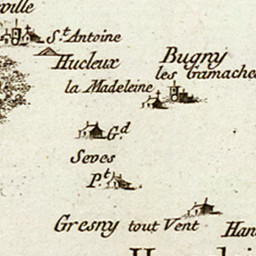 ville
S.t Antoine
Hucleux
Bugny
les Gamache
la Madeleine
G.d
Seves
P.t
Gresny tout Vent
Han